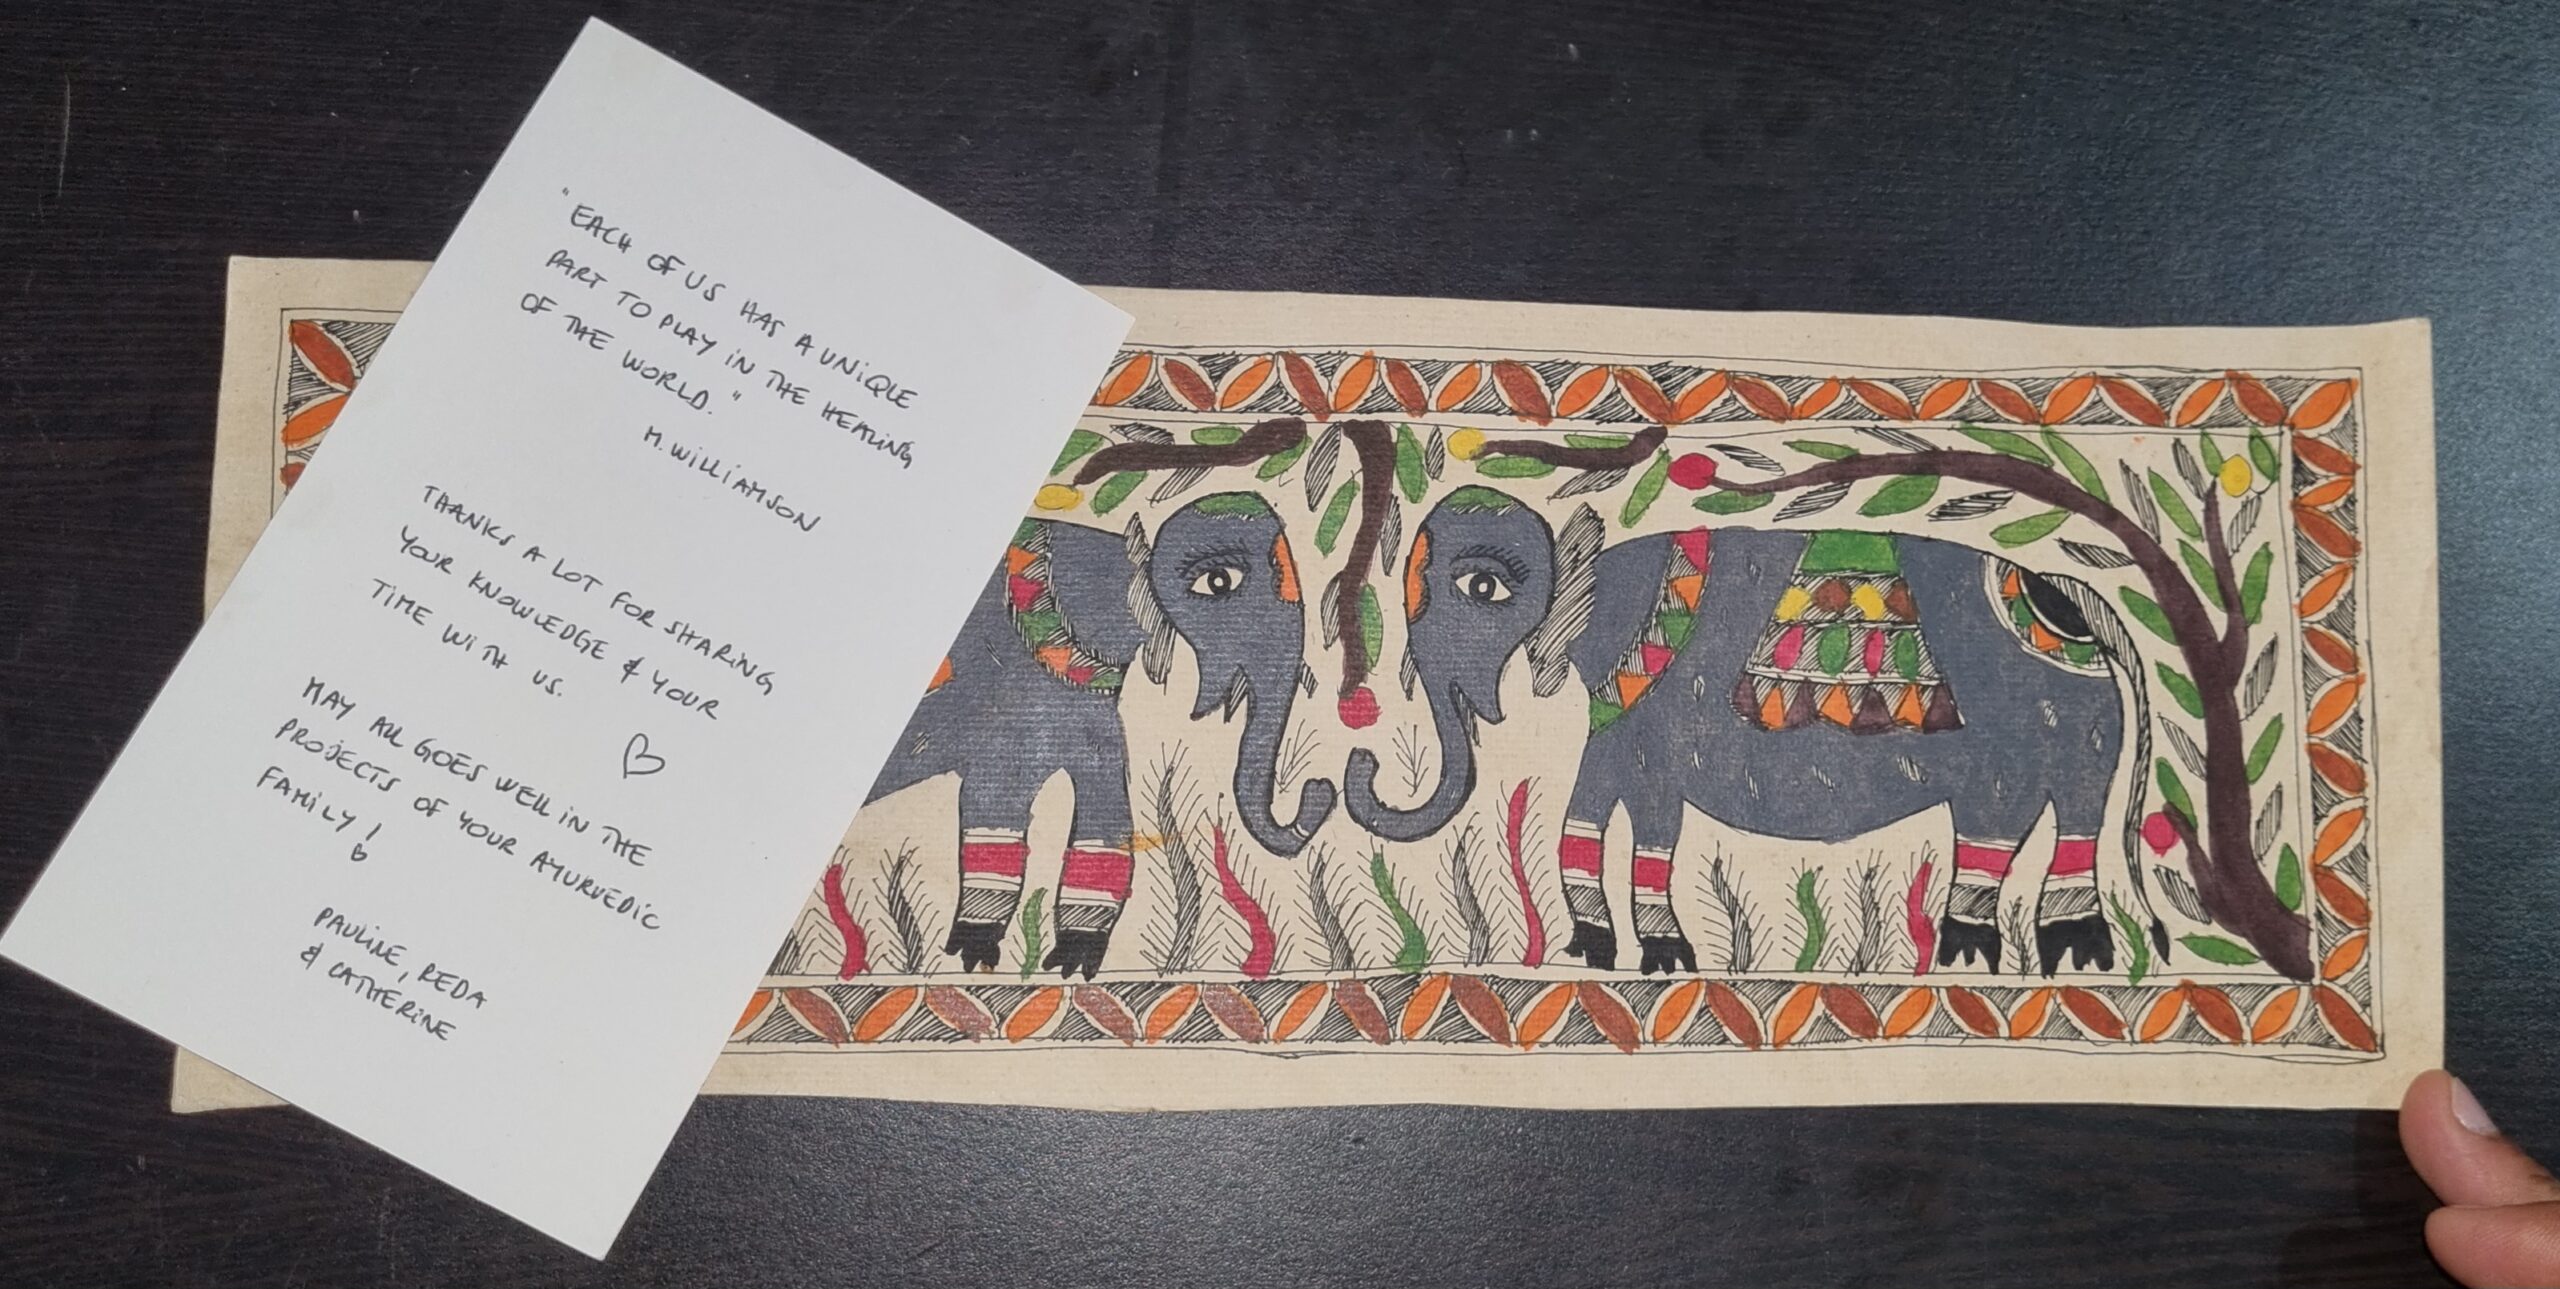 "EACH OF US HAS A UNIQUE
PART TO PLAY IN THE HEALING
OF THE WORLD."
M. WILLIAMSON
THANKS A LOT FOR SHARING
YOUR KNOWLEDGE & YOUR
TIME WITH US.
MAY ALL GOES WELL IN THE
PROJECTS OF YOUR AYURVEDIC
FAMILY!
PAULINE, REDA
& CATHERINE